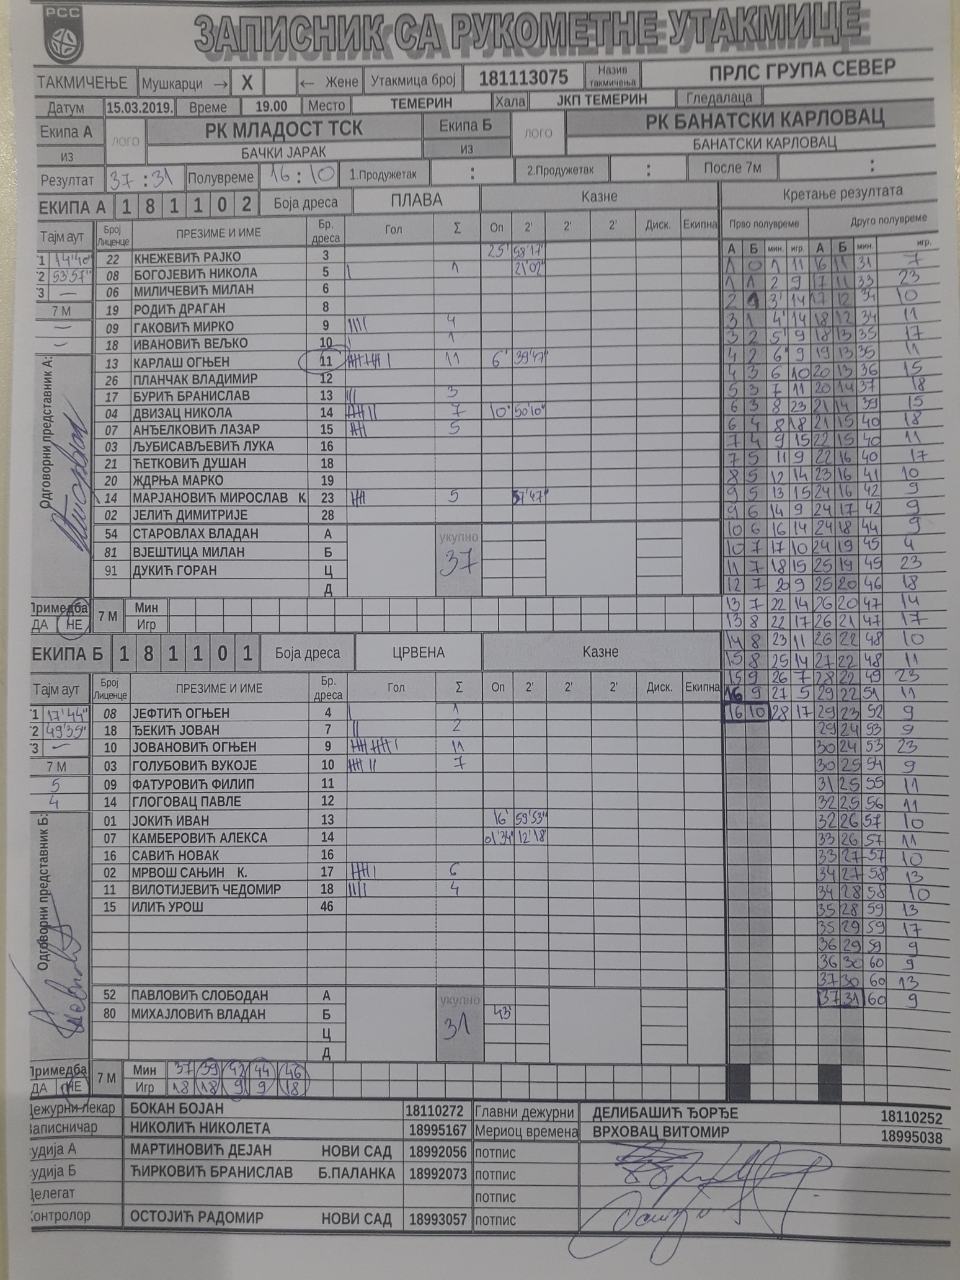 РСС
ЗАПИСНИК СА РУКОМЕТНЕ УТАКМИЦЕ
ТАКМИЧЕЊЕ Мушкарци → X ← Жене Утакмица број 181113075 Назив такмичења ПРЛС ГРУПА СЕВЕР
Датум 15.03.2019. Време 19.00 Место ТЕМЕРИН Хала ЈКП ТЕМЕРИН Гледалаца
Екипа А ЛОГО РК МЛАДОСТ ТСК Екипа Б ЛОГО РК БАНАТСКИ КАРЛОВАЦ
ИЗ БАЧКИ ЈАРАК ИЗ БАНАТСКИ КАРЛОВАЦ
Резултат 37 : 31 Полувреме 16 : 10 1.Продужетак : 2.Продужетак : После 7м :
ЕКИПА А 1 8 1 1 0 2 Боја дреса ПЛАВА Казне Кретање резултата
Прво полувреме Друго полувреме
Тајм аут Број Лиценце ПРЕЗИМЕ И ИМЕ Бр. дреса Гол Σ Оп 2' 2' 2' Диск. Екипна А Б мин. игр. А Б мин. игр.
1 14'40" 22 КНЕЖЕВИЋ РАЈКО 3 25' 58'17" 1 0 1 11 16 11 31 7
2 53'57" 08 БОГОЈЕВИЋ НИКОЛА 5 | 1 21'02" 1 1 2 9 17 11 33 23
3 — 06 МИЛИЧЕВИЋ МИЛАН 6 2 1 3' 14 17 12 34 10
7 М 19 РОДИЋ ДРАГАН 8 3 1 4' 14 18 12 34 11
— 09 ГАКОВИЋ МИРКО 9 |||| 4 3 2 5' 9 18 13 35 17
— 18 ИВАНОВИЋ ВЕЉКО 10 | 1 4 2 6' 9 19 13 35 11
13 КАРЛАШ ОГЊЕН 11 11 6' 39'47" 4 3 6 10 20 13 36 15
26 ПЛАНЧАК ВЛАДИМИР 12 5 3 7 11 20 14 37 18
17 БУРИЋ БРАНИСЛАВ 13 ||| 3 6 3 8 23 21 14 39 15
04 ДВИЗАЦ НИКОЛА 14 7 10' 50'10" 6 4 8 18 21 15 40 18
07 АНЂЕЛКОВИЋ ЛАЗАР 15 5 7 4 9 15 22 15 40 11
03 ЉУБИСАВЉЕВИЋ ЛУКА 16 7 5 11 9 22 16 40 17
21 ЋЕТКОВИЋ ДУШАН 18 8 5 12 14 23 16 41 10
20 ЖДРЊА МАРКО 19 9 5 13 15 24 16 42 9
14 МАРЈАНОВИЋ МИРОСЛАВ К 23 5 57'47" 9 6 14 9 24 17 42 9
02 ЈЕЛИЋ ДИМИТРИЈЕ 28 10 6 16 14 24 18 44 9
54 СТАРОВЛАХ ВЛАДАН А укупно 10 7 17 10 24 19 45 4
81 ВЈЕШТИЦА МИЛАН Б 37 11 7 18 15 25 19 45 23
91 ДУКИЋ ГОРАН Ц 12 7 20 9 25 20 46 18
Д
Одговорни представник А:
Примедба 7 М Мин 13 7 22 14 26 20 47 14
ДА НЕ Игр 13 8 22 17 26 21 47 17
14 8 23 11 26 22 48 10
ЕКИПА Б 1 8 1 1 0 1 Боја дреса ЦРВЕНА Казне 15 8 25 14 27 22 48 11
15 9 26 7 28 22 49 23
Тајм аут Број Лиценце ПРЕЗИМЕ И ИМЕ Бр. дреса Гол Σ Оп 2' 2' 2' Диск. Екипна 16 9 27 5 29 22 51 11
1 17'44" 08 ЈЕФТИЋ ОГЊЕН 4 | 1 16 10 28 17 29 23 52 9
2 49'39" 18 ЂЕКИЋ ЈОВАН 7 || 2 29 24 53 9
3 — 10 ЈОВАНОВИЋ ОГЊЕН 9 11 30 24 53 23
7 М 03 ГОЛУБОВИЋ ВУКОЈЕ 10 7 30 25 54 9
5 09 ФАТУРОВИЋ ФИЛИП 11 31 25 55 11
4 14 ГЛОГОВАЦ ПАВЛЕ 12 32 25 56 11
01 ЈОКИЋ ИВАН 13 16' 59'53" 32 26 57 10
07 КАМБЕРОВИЋ АЛЕКСА 14 01'34" 12'18" 33 26 57 11
16 САВИЋ НОВАК 16 33 27 57 10
02 МРВОШ САЊИН К. 17 6 34 27 58 13
11 ВИЛОТИЈЕВИЋ ЧЕДОМИР 18 |||| 4 34 28 58 10
15 ИЛИЋ УРОШ 46 35 28 59 13
35 29 59 17
36 29 59 9
36 30 60 9
37 30 60 13
52 ПАВЛОВИЋ СЛОБОДАН А укупно 37 31 60 9
80 МИХАЈЛОВИЋ ВЛАДАН Б 31 43'
Ц
Д
Одговорни представник Б:
Примедба 7 М Мин 37 39 42 44 46
ДА НЕ Игр 18 18 9 9 18
Дежурни лекар БОКАН БОЈАН 18110272 Главни дежурни ДЕЛИБАШИЋ ЂОРЂЕ 18110252
Записничар НИКОЛИЋ НИКОЛЕТА 18995167 Мериоц времена ВРХОВАЦ ВИТОМИР 18995038
Судија А МАРТИНОВИЋ ДЕЈАН НОВИ САД 18992056 потпис
Судија Б ЋИРКОВИЋ БРАНИСЛАВ Б.ПАЛАНКА 18992073 потпис
Делегат потпис
Контролор ОСТОЈИЋ РАДОМИР НОВИ САД 18993057 потпис